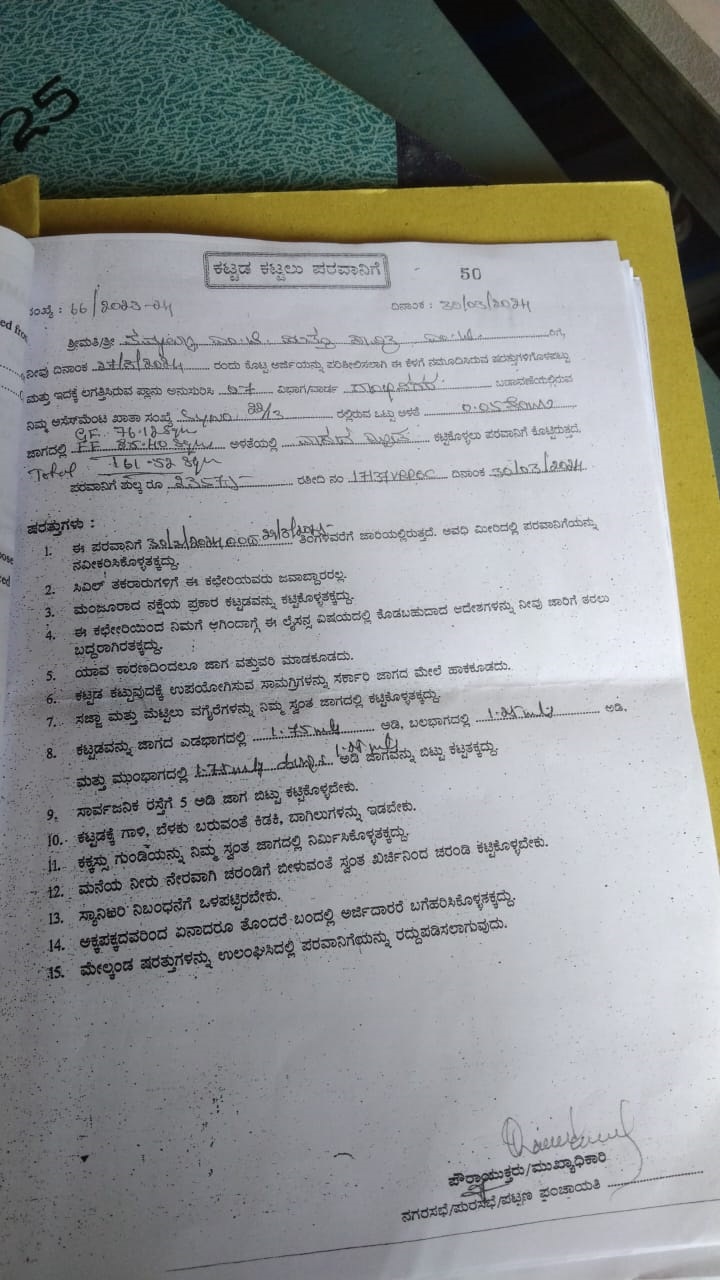 25
ಕಟ್ಟಡ ಕಟ್ಟಲು ಪರವಾನಿಗೆ
50
ಸಂಖ್ಯೆ : 66/2023-24 ದಿನಾಂಕ : 30/03/2024
ಶ್ರೀಮತಿ/ಶ್ರೀ ರಿಗೆ,
ನೀವು ದಿನಾಂಕ 27/3/2024 ರಂದು ಕೊಟ್ಟ ಅರ್ಜಿಯನ್ನು ಪರಿಶೀಲಿಸಲಾಗಿ ಈ ಕೆಳಗೆ ನಮೂದಿಸಿರುವ ಷರತ್ತುಗಳಿಗೊಳಪಟ್ಟು
ಮತ್ತು ಇದಕ್ಕೆ ಲಗತ್ತಿಸಿರುವ ಪ್ಲಾನು ಅನುಸರಿಸಿ 07 ವಿಭಾಗ/ವಾರ್ಡ ಬಡಾವಣೆಯಲ್ಲಿರುವ
ನಿಮ್ಮ ಅಸೆಸ್‌ಮೆಂಟ ಖಾತಾ ಸಂಖ್ಯೆ Sy.No. 22/3 ರಲ್ಲಿರುವ ಒಟ್ಟು ಅಳತೆ
GF 76.12 Sqm
ಜಾಗದಲ್ಲಿ FF 85.40 Sqm ಅಳತೆಯಲ್ಲಿ ವಾಸದ ಕಟ್ಟಿಕೊಳ್ಳಲು ಪರವಾನಿಗೆ ಕೊಟ್ಟಿರುತ್ತದೆ.
Total 161-52 Sqm
ಪರವಾನಿಗೆ ಶುಲ್ಕ ರೂ 2357/- ರಶೀದಿ ನಂ ದಿನಾಂಕ 30/03/2024
ಷರತ್ತುಗಳು :
1. ಈ ಪರವಾನಿಗೆ ತಿಂಗಳವರೆಗೆ ಜಾರಿಯಲ್ಲಿರುತ್ತದೆ. ಅವಧಿ ಮೀರಿದಲ್ಲಿ ಪರವಾನಿಗೆಯನ್ನು
ನವೀಕರಿಸಿಕೊಳ್ಳತಕ್ಕದ್ದು.
2. ಸಿವಿಲ್ ತಕರಾರುಗಳಿಗೆ ಈ ಕಛೇರಿಯವರು ಜವಾಬ್ದಾರರಲ್ಲ.
3. ಮಂಜೂರಾದ ನಕ್ಷೆಯ ಪ್ರಕಾರ ಕಟ್ಟಡವನ್ನು ಕಟ್ಟಿಕೊಳ್ಳತಕ್ಕದ್ದು.
4. ಈ ಕಛೇರಿಯಿಂದ ನಿಮಗೆ ಆಗಿಂದಾಗ್ಗೆ ಈ ಲೈಸನ್ಸ ವಿಷಯದಲ್ಲಿ ಕೊಡಬಹುದಾದ ಆದೇಶಗಳನ್ನು ನೀವು ಜಾರಿಗೆ ತರಲು
ಬದ್ದರಾಗಿರತಕ್ಕದ್ದು.
5. ಯಾವ ಕಾರಣದಿಂದಲೂ ಜಾಗ ವತ್ತುವರಿ ಮಾಡಕೂಡದು.
6. ಕಟ್ಟಡ ಕಟ್ಟುವುದಕ್ಕೆ ಉಪಯೋಗಿಸುವ ಸಾಮಗ್ರಿಗಳನ್ನು ಸರ್ಕಾರಿ ಜಾಗದ ಮೇಲೆ ಹಾಕಕೂಡದು.
7. ಸಜ್ಜಾ ಮತ್ತು ಮೆಟ್ಟಿಲು ವಗೈರೆಗಳನ್ನು ನಿಮ್ಮ ಸ್ವಂತ ಜಾಗದಲ್ಲಿ ಕಟ್ಟಿಕೊಳ್ಳತಕ್ಕದ್ದು.
8. ಕಟ್ಟಡವನ್ನು ಜಾಗದ ಎಡಭಾಗದಲ್ಲಿ 1.75 ಅಡಿ, ಬಲಭಾಗದಲ್ಲಿ 1.25 ಅಡಿ,
ಮತ್ತು ಮುಂಭಾಗದಲ್ಲಿ 1.75 ಅಡಿ ಜಾಗವನ್ನು ಬಿಟ್ಟು ಕಟ್ಟತಕ್ಕದ್ದು.
9. ಸಾರ್ವಜನಿಕ ರಸ್ತೆಗೆ 5 ಅಡಿ ಜಾಗ ಬಿಟ್ಟು ಕಟ್ಟಿಕೊಳ್ಳಬೇಕು.
10. ಕಟ್ಟಡಕ್ಕೆ ಗಾಳಿ, ಬೆಳಕು ಬರುವಂತೆ ಕಿಡಕಿ, ಬಾಗಿಲುಗಳನ್ನು ಇಡಬೇಕು.
11. ಕಕ್ಕಸ್ಸು ಗುಂಡಿಯನ್ನು ನಿಮ್ಮ ಸ್ವಂತ ಜಾಗದಲ್ಲಿ ನಿರ್ಮಿಸಿಕೊಳ್ಳತಕ್ಕದ್ದು.
12. ಮನೆಯ ನೀರು ನೇರವಾಗಿ ಚರಂಡಿಗೆ ಬೀಳುವಂತೆ ಸ್ವಂತ ಖರ್ಚಿನಿಂದ ಚರಂಡಿ ಕಟ್ಟಿಕೊಳ್ಳಬೇಕು.
13. ಸ್ಯಾನಿಟರಿ ನಿಬಂಧನೆಗೆ ಒಳಪಟ್ಟಿರಬೇಕು.
14. ಅಕ್ಕಪಕ್ಕದವರಿಂದ ಏನಾದರೂ ತೊಂದರೆ ಬಂದಲ್ಲಿ ಅರ್ಜಿದಾರರೆ ಬಗೆಹರಿಸಿಕೊಳ್ಳತಕ್ಕದ್ದು.
15. ಮೇಲ್ಕಂಡ ಷರತ್ತುಗಳನ್ನು ಉಲಂಘಿಸಿದಲ್ಲಿ ಪರವಾನಿಗೆಯನ್ನು ರದ್ದುಪಡಿಸಲಾಗುವುದು.
ಪೌರಾಯುಕ್ತರು/ಮುಖ್ಯಾಧಿಕಾರಿ
ನಗರಸಭೆ/ಪುರಸಭೆ/ಪಟ್ಟಣ ಪಂಚಾಯತಿ